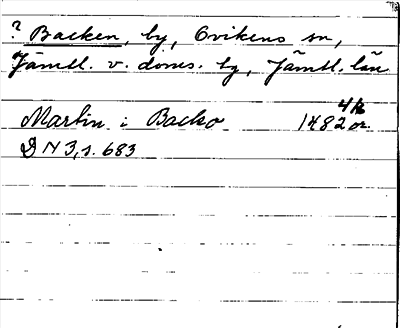 ? Backen, by, Ovikens sn,
Jämtl. v. doms. by, Jämtl. län
4/12
Martin i Backo 1482 or.
DN 3, s. 683